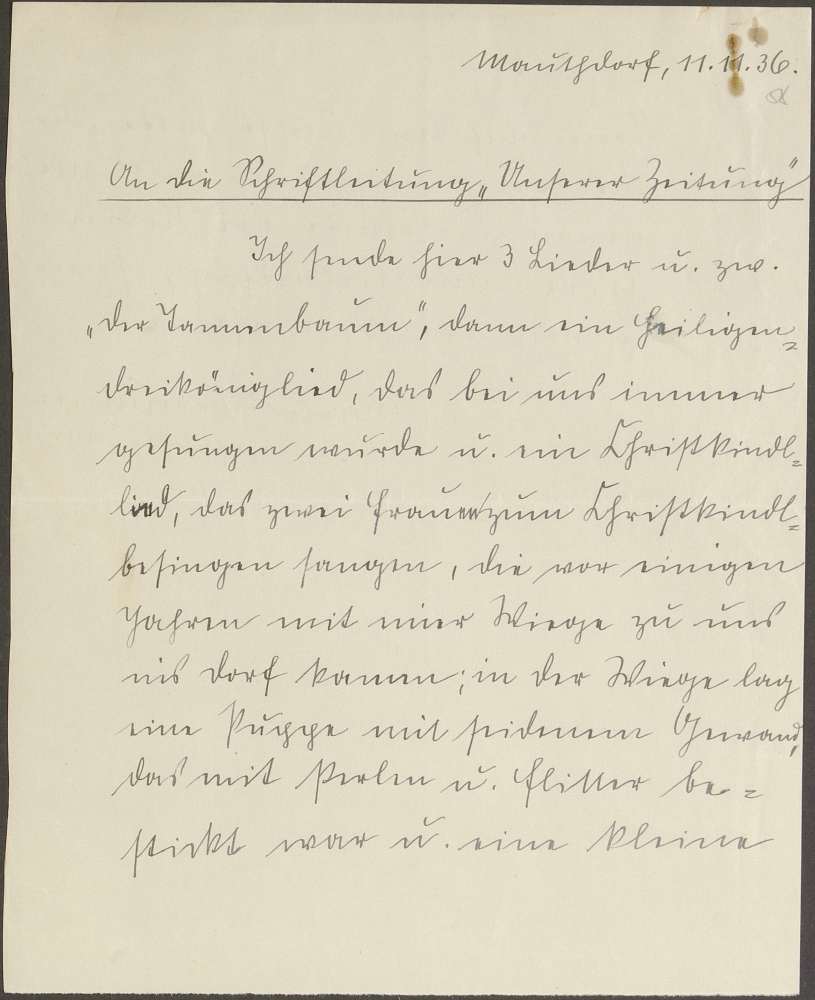 Mauthdorf, 11.11.36.
An die Schriftleitung „Unserer Zeitung"
Ich sende hier 3 Lieder u. zw.
„Der Tannenbaum", dann ein Heiligen=
dreiköniglied, das bei uns immer
gesungen wurde u. ein Christkindl=
lied, das zwei Frauen zum Christkindl=
besingen sangen, die vor einigen
Jahren mit einer Wiege zu uns
ins Dorf kamen; in der Wiege lag
eine Puppe mit seidenem Gewand,
das mit Perlen u. Flitter be=
stickt war u. eine kleine